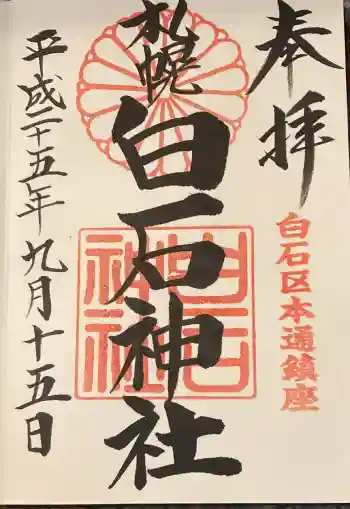 奉拝
白石区本通鎮座
札幌
白石神社
白石神社
平成二十五年九月十五日